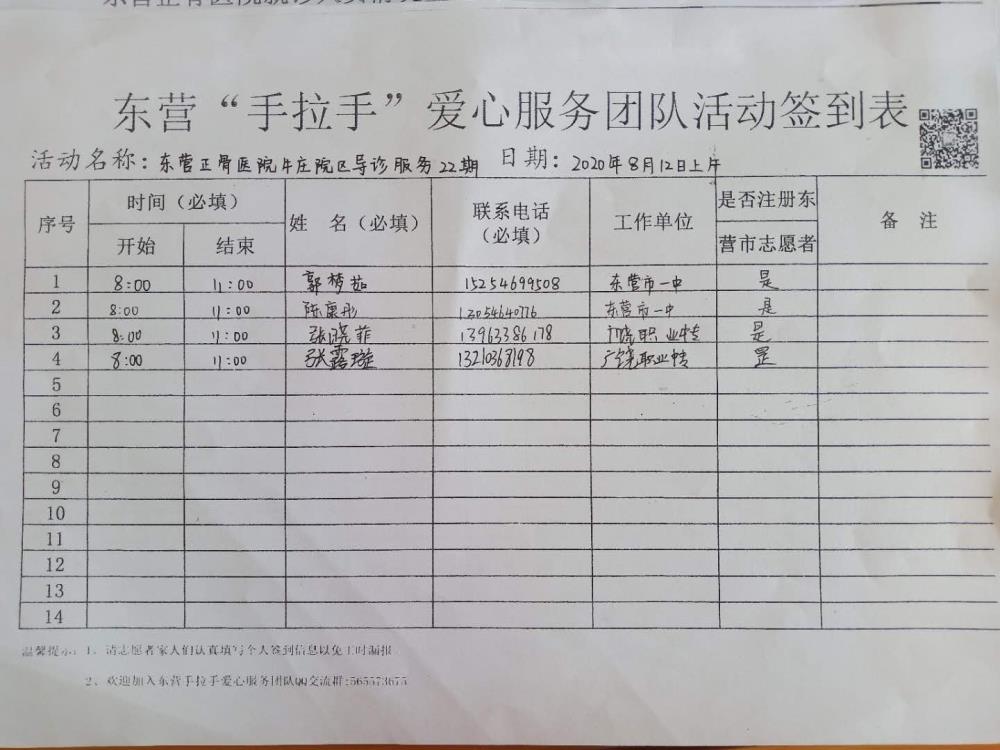 东营“手拉手”爱心服务团队活动签到表
活动名称：东营正骨医院牛庄院区导诊服务22期 日期：2020年8月12日上午
序号 时间（必填） 姓 名（必填） 联系电话（必填） 工作单位 是否注册东营市志愿者 备 注
开始 结束
1 8:00 11:00 郭梦茹 15254699508 东营市一中 是
2 8:00 11:00 陈康彤 13054640776 东营市一中 是
3 8:00 11:00 张晓菲 13963386178 广饶职业中专 是
4 8:00 11:00 张露璇 13210368198 广饶职业中专 是
5
6
7
8
9
10
11
12
13
14
温馨提示：1、请志愿者家人们认真填写个人签到信息以免工时漏报
2、欢迎加入东营手拉手爱心服务团队QQ交流群:565573675